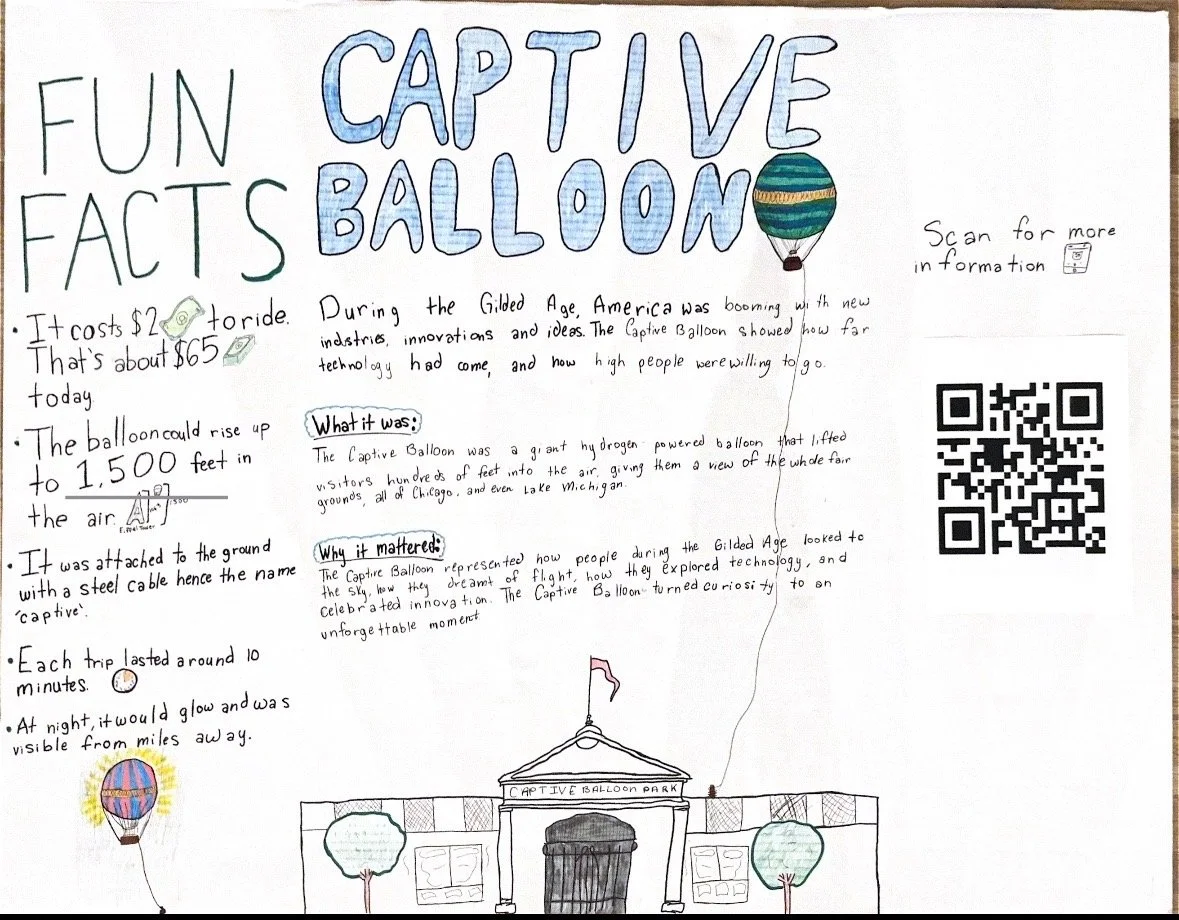 FUN
FACTS
• It costs $2 to ride.
That's about $65
today
• The balloon could rise up
to 1,500 feet in
the air.
Eiffel Tower
1500
• It was attached to the ground
with a steel cable hence the name
'captive'.
• Each trip lasted around 10
minutes.
• At night, it would glow and was
visible from miles away.
CAPTIVE
BALLOON
During the Gilded Age, America was booming with new
indstries, innovations and ideas. The Captive Balloon showed how far
technology had come, and how high people were willing to go.
What it was:
The Captive Balloon was a giant hydrogen-powered balloon that lifted
visitors hundreds of feet into the air, giving them a view of the whole fair
grounds, all of Chicago, and even Lake Michigan.
Why it mattered:
The Captive Balloon represented how people during the Gilded Age looked to
the sky, how they dreamt of flight, how they explored technology, and
celebrated innovation. The Captive Balloon turned curiosity to an
unforgettable moment
CAPTIVE BALLOON PARK
Scan for more
information